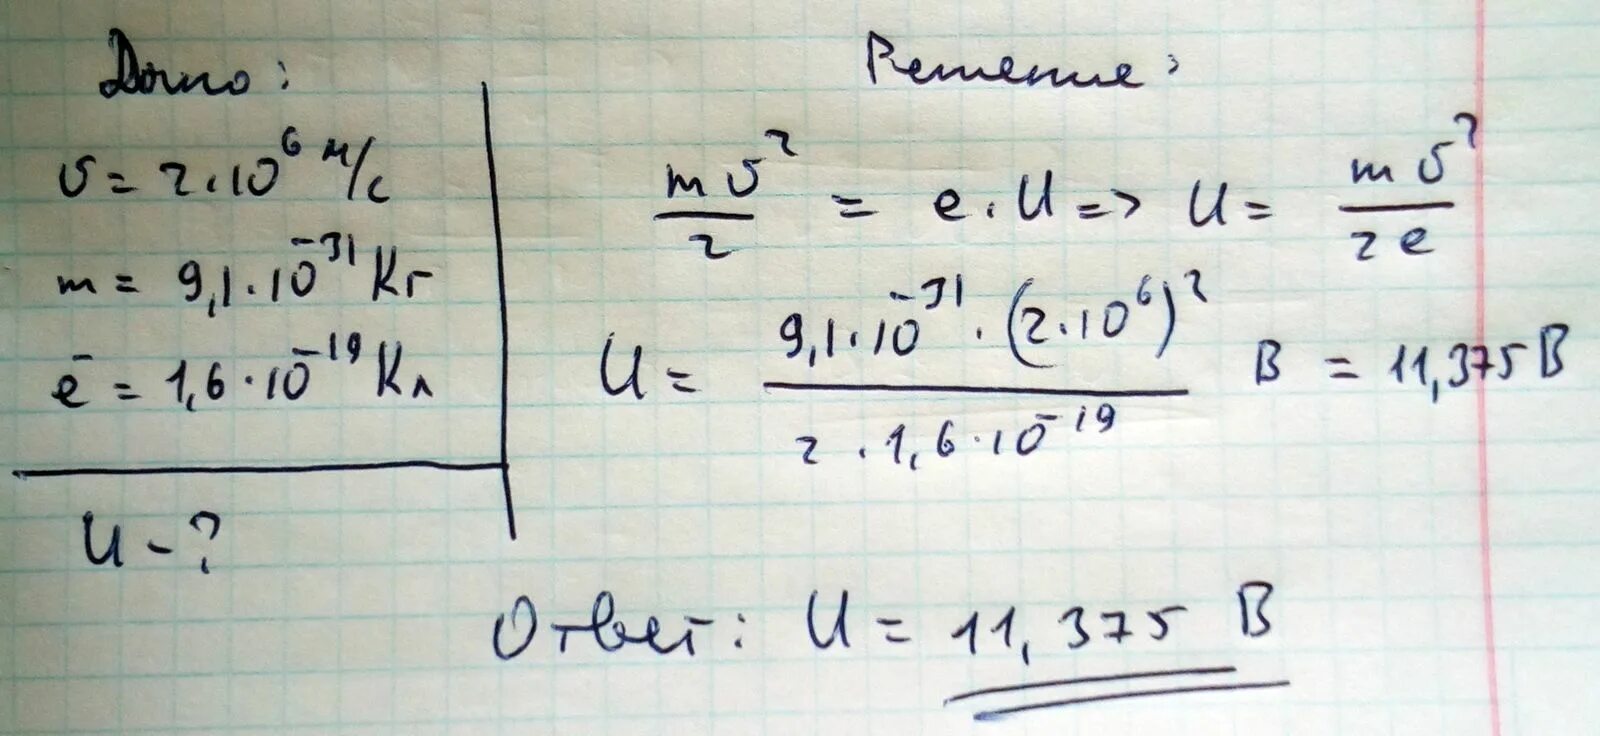 Дано:
υ = 2·10⁶ м/с
m = 9,1·10⁻³¹ Кг
e̅ = 1,6·10⁻¹⁹ Кл
U - ?
Решение:
mυ²/2 = e·U => U = mυ²/2e
U = 9,1·10⁻³¹·(2·10⁶)²/2·1,6·10⁻¹⁹ В = 11,375 В
Ответ: U = 11,375 В